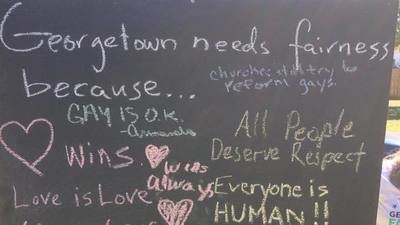 Georgetown needs fairness
because...
churches try to
reform gays.
GAY IS O.K.
WINS.
All People
Deserve Respect
wins
always
Love is Love
Everyone is
HUMAN!!